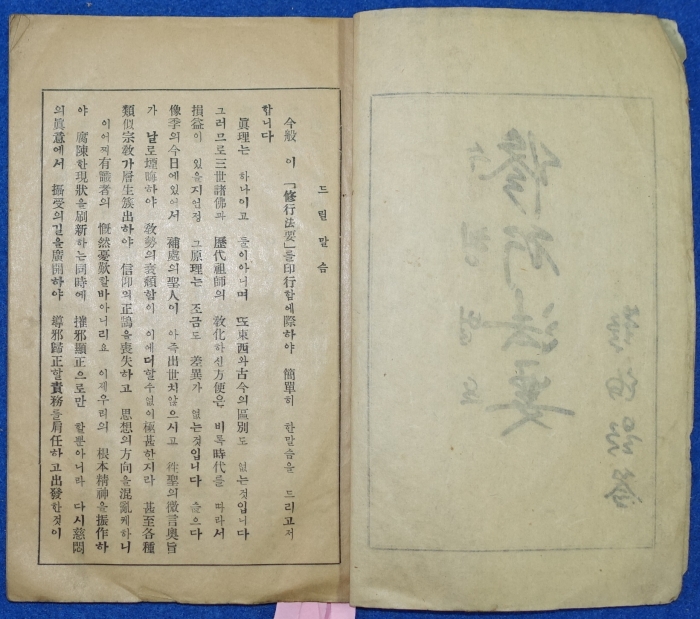 드릴말슴
今般 이 「修行法要」를 印行함에際하야 簡單히 한말슴을 드리고저
합니다
眞理는 하나이고 둘이아니며 또東西와 古今의 區別도 없는것입니다
그러므로 三世諸佛과 歷代祖師의 敎化하신方便은 비록時代를 따라서
損益이 있을지언정 그原理는 조금도 差異가 없는것입니다 슬으다
像季의今日에있어서 補處의聖人이 아즉出世치않으시고 徃聖의微言奧旨
가 날로堙晦하야 敎勢의衰頹함이 이에더할수없이極甚한지라 甚至各種
類似宗敎가層生簇出하야 信仰의正鵠을喪失하고 思想의方向을混亂케하니
이어찌有識者의 慨然憂歎할바아니리요 이제우리의 根本精神을振作하
야 腐陳한現狀을刷新하는同時에 摧邪顯正으로만 할뿐아니라 다시慈悶
의眞意에서 攝受의길을廣開하야 導邪歸正할責務를肩任하고出發한것이
修行法要
수행법요